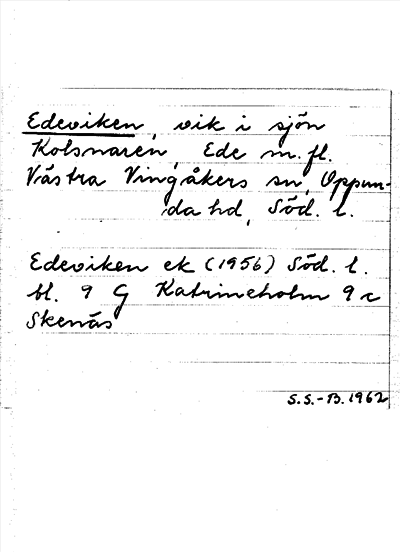 Edeviken, vik i sjön
Kolsnaren, Ede m. fl.
Västra Vingåkers sn, Oppun-
da hd, Söd. l.
Edeviken ek (1956) Söd. l.
bl. 9 G Katrineholm 9 c
Skenäs
S.S.-B. 1962